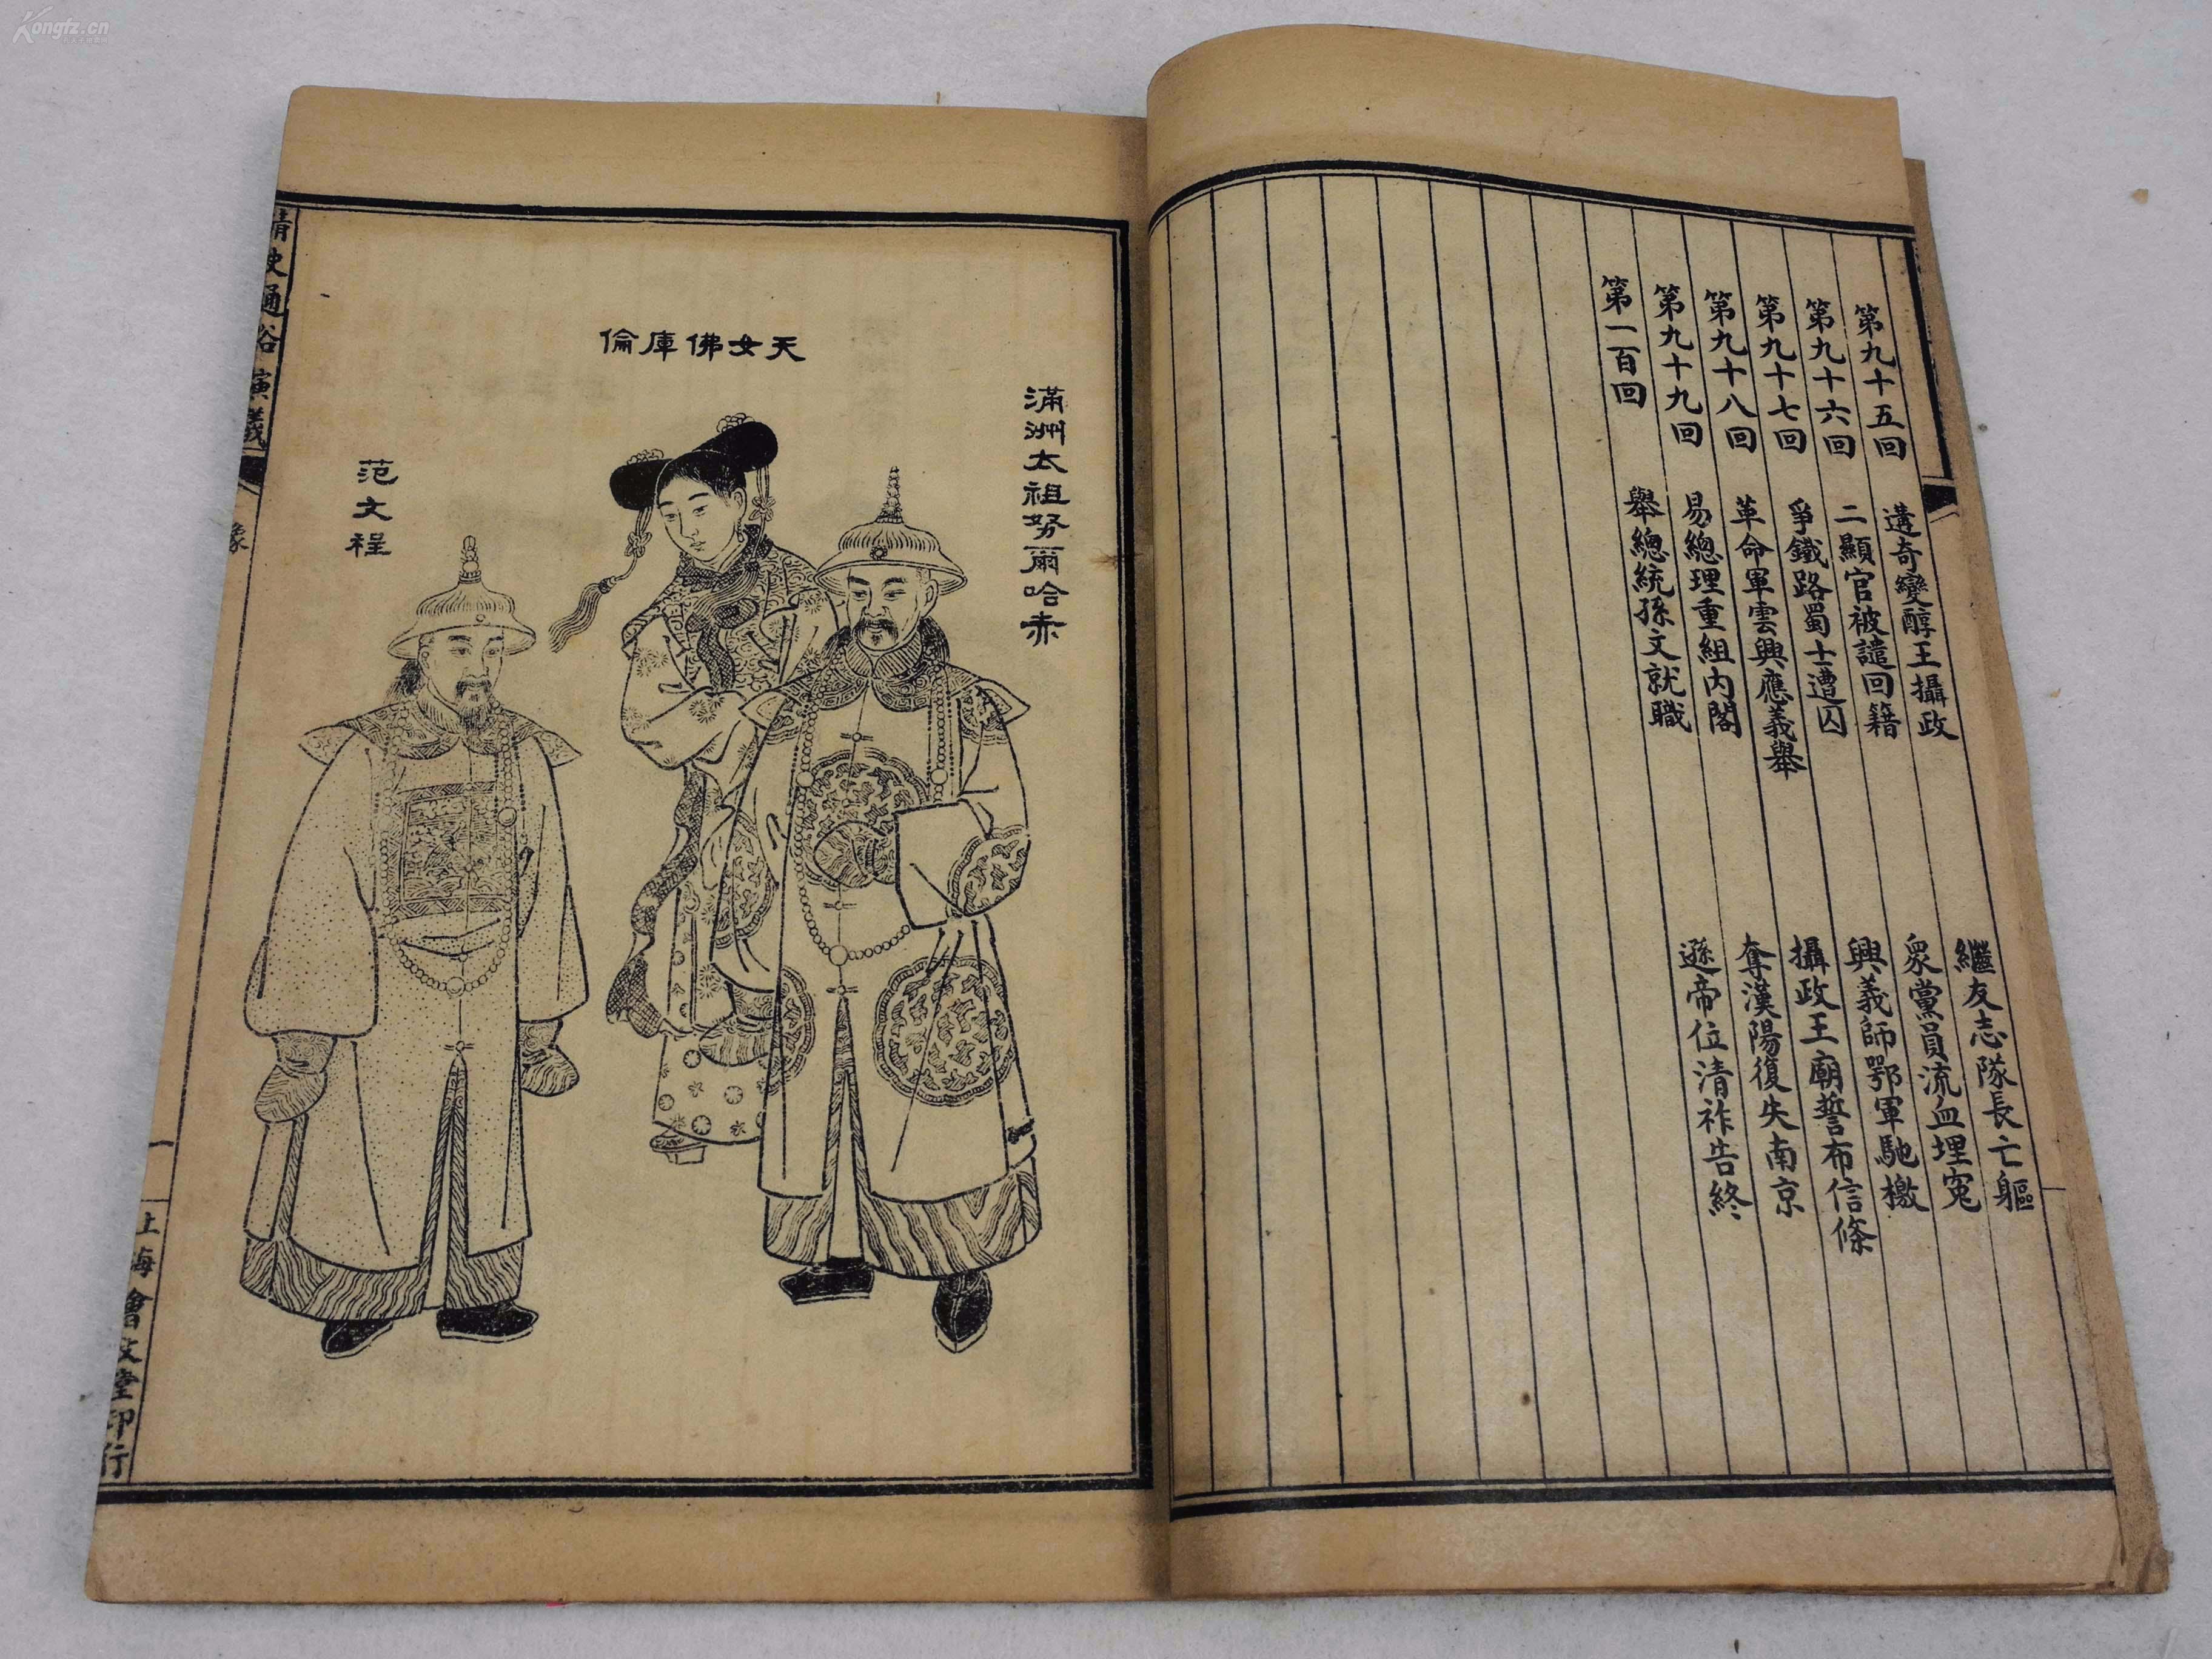 第九十五回 遘奇變醇王攝政 繼友志隊長亡軀
第九十六回 二顯官被譴回籍 衆黨員流血埋寃
第九十七回 爭鐵路蜀士遭囚 興義師鄂軍馳檄
第九十八回 革命軍雲興應義舉 攝政王廟誓布信條
第九十九回 易總理重組内閣 奪漢陽復失南京
第一百回 舉總統孫文就職 遜帝位清祚告終
滿洲太祖努爾哈赤
天女佛庫倫
范文程
清史通俗演義
像
一
上海會文堂印行
Kongfz.cn